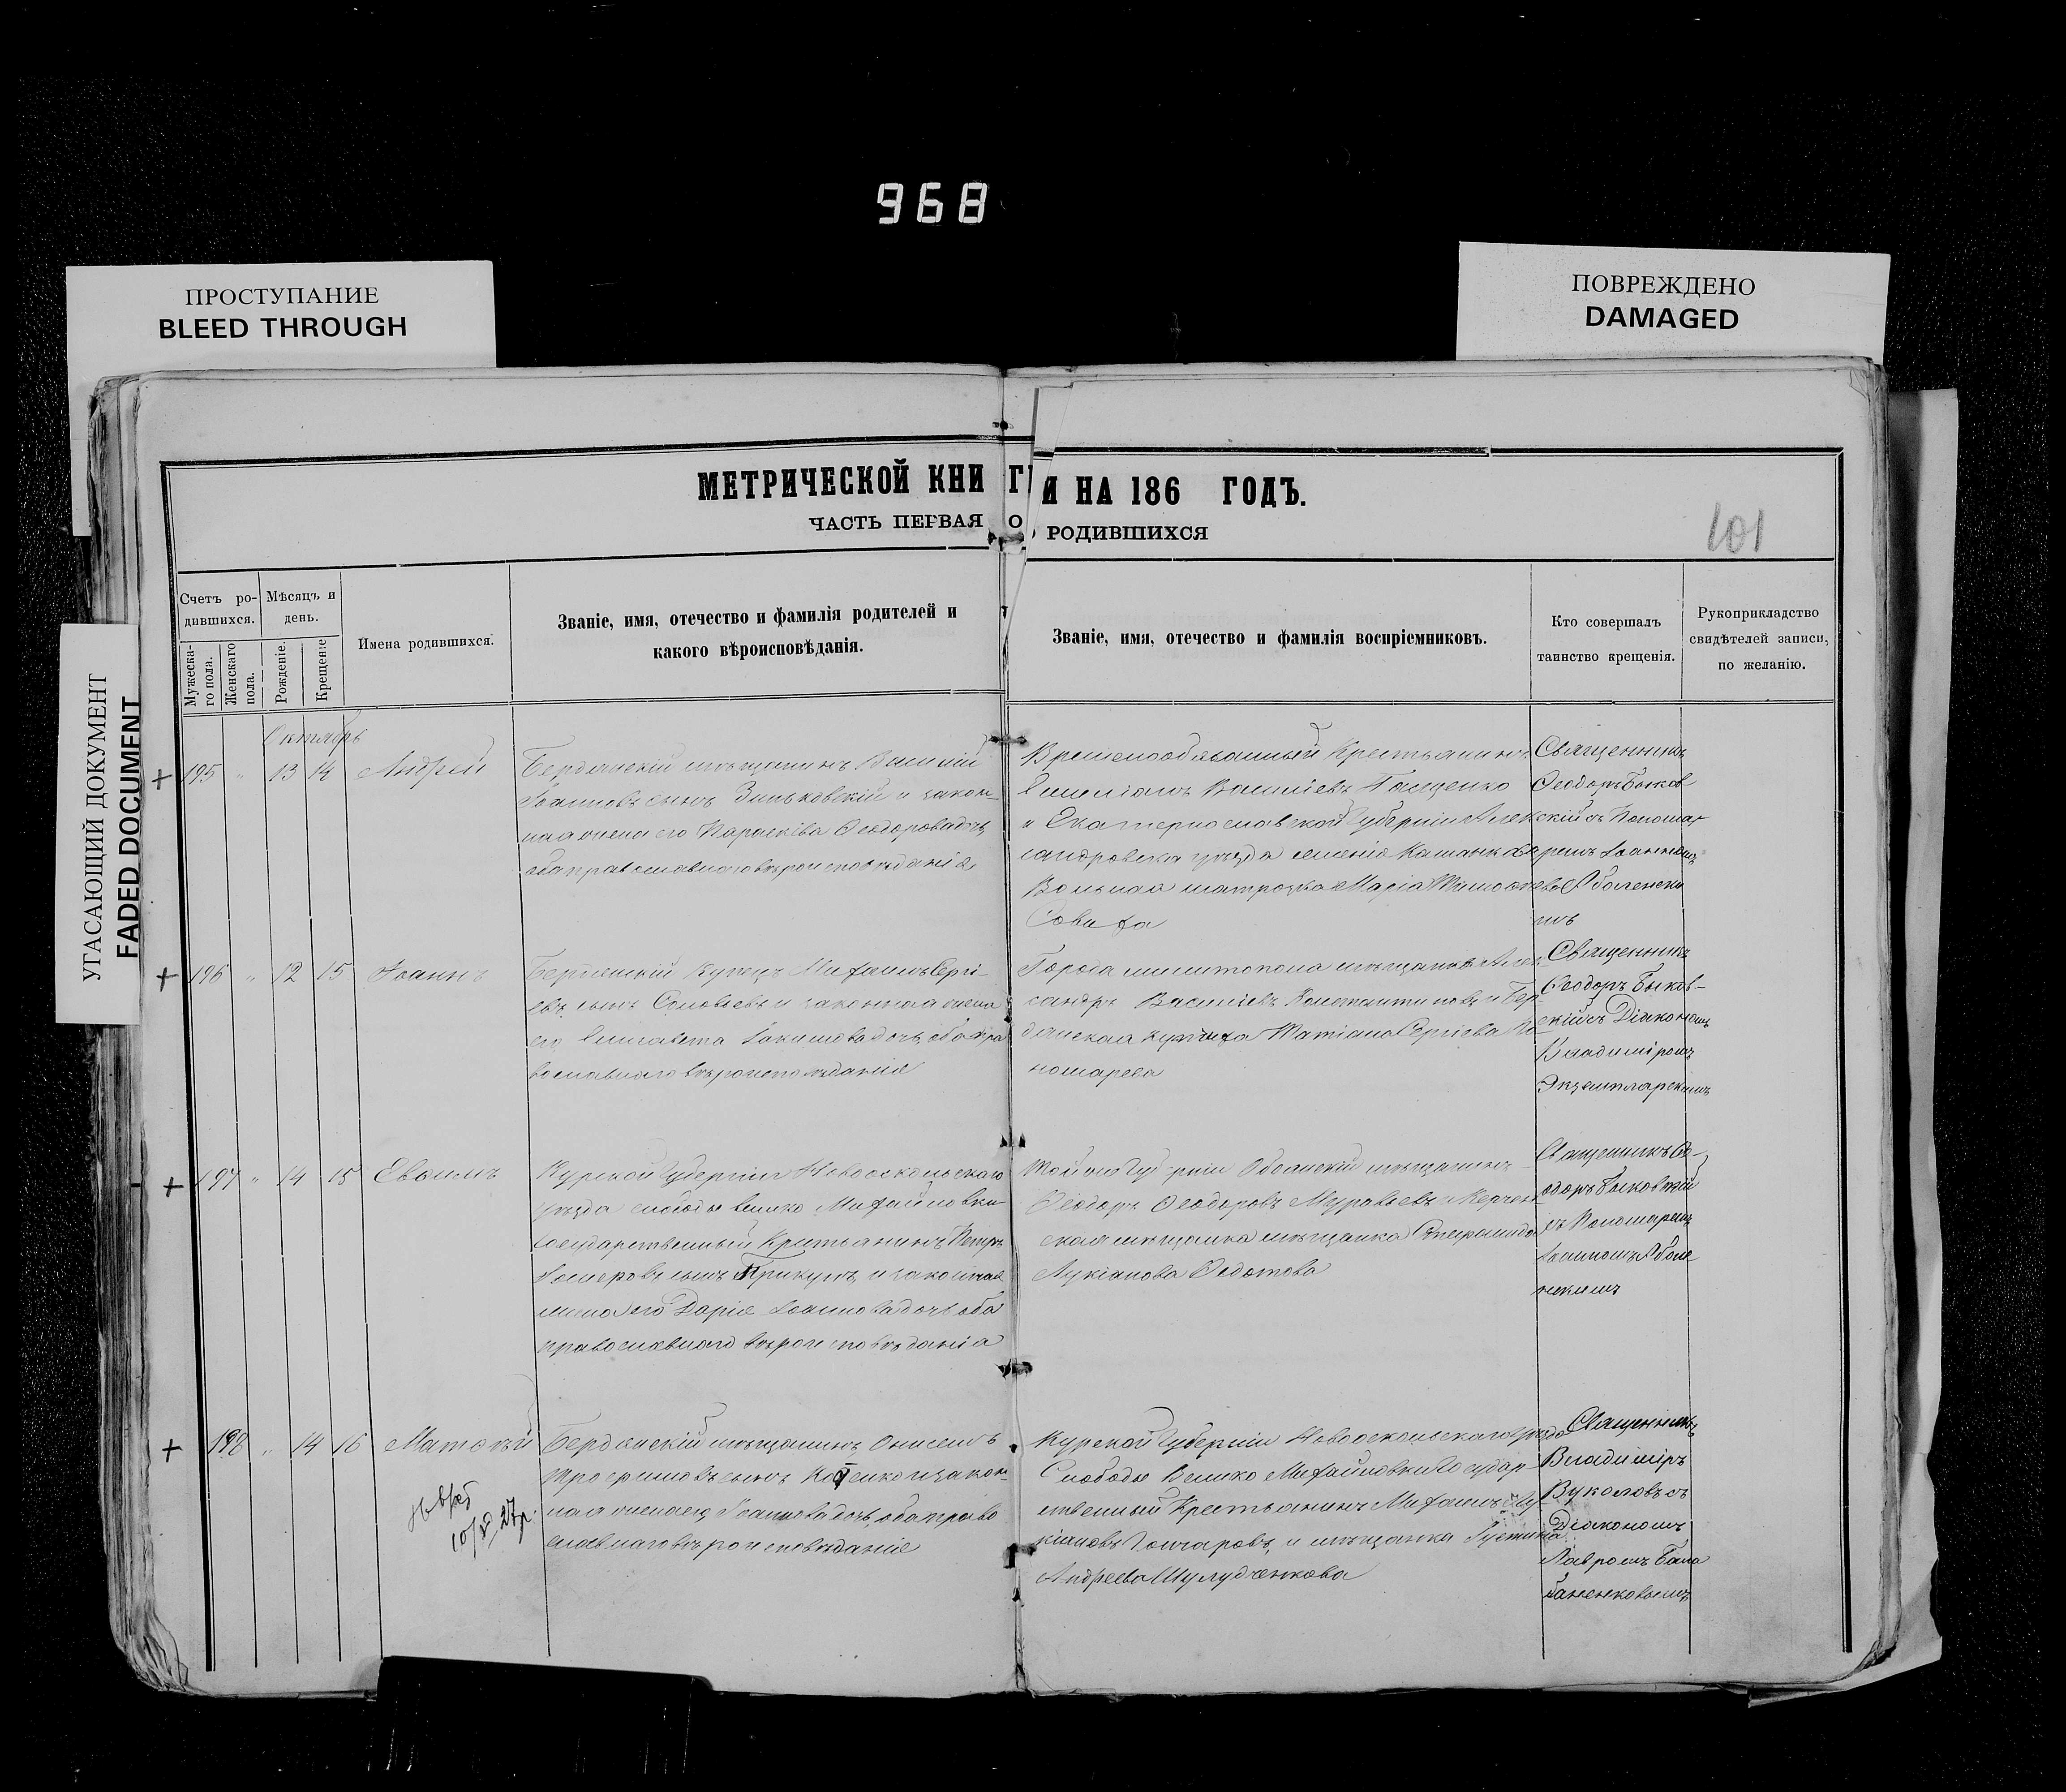 968
ПРОСТУПАНИЕ
BLEED THROUGH
ПОВРЕЖДЕНО
DAMAGED
УГАСАЮЩИЙ ДОКУМЕНТ
FADED DOCUMENT
МЕТРИЧЕСКОЙ КНИГИ НА 186 ГОДЪ.
ЧАСТЬ ПЕРВАЯ О РОДИВШИХСЯ
101
Счетъ ро-
дившихся.
Мужеска-
го пола.
Женскаго
пола.
Мѣсяцъ и
день.
Рожденіе.
Крещеніе
Имена родившихся.
Званіе, имя, отечество и фамилія родителей и
какого вѣроисповѣданія.
Званіе, имя, отечество и фамилія воспріемниковъ.
Кто совершалъ
таинство крещенія.
Рукоприкладство
свидѣтелей записи,
по желанію.
Октябрь
195 " 13 14 Андрей
Бердянскій мѣщанинъ Василій
Іоанновъ сынъ Зиньковскій и закон-
ная жена его Парасківа Ѳеодорова дочь
оба православнаго вѣроисповѣданія
Временнообязанный Крестьянинъ
Василіевъ
и Екатеринославской Губерніи Алек
сандровска уѣзда имѣнія
Марія
Священникъ
Ѳеодоръ Быков
скій съ Понома
ремъ Іоанномъ
Оболенски
мъ
196 " 12 15 Іоаннъ
Бердянскій Купецъ Михаилъ Сергі-
евъ сынъ Соловьевъ и законная жена
его Елисавета дочь оба пра
вославнаго вѣроисповѣданія
Города Мелитополя мѣщанинъ Алек
сандръ Василіевъ Константиновъ и Бер
дянская купчиха Татіана Сергіева По
номарева
Священникъ
Ѳеодоръ Быков-
скій съ Діакономъ
Владиміромъ
Экземплярскимъ
197 " 14 15 Евѳимъ
Курской Губерніи Новооскольскаго
уѣзда слободы Велико Михайловки
государственный Крестьянинъ Петръ
сынъ и законная
жена его Дарія Іоаннова дочь оба
православнаго вѣроисповѣданія
Той же Губерніи Обоянскій мѣщанинъ
Ѳеодоръ Ѳеодоровъ Муравьевъ и Керчен
ская мѣщанка мѣщанка
Лукіанова Ѳедотова
Священникъ Ѳе-
одоръ Быковскій
съ Пономаремъ
Іоанномъ Оболе
нскимъ
198 " 14 16 Матѳѣй
27 р.
Бердянскій мѣщанинъ Онисимъ
Трофимовъ сынъ и закон
ная жена его Іоаннова дочь, оба право
славнаго вѣроисповѣданія
Курской Губерніи Новооскольскаго уѣзда
Слободы Велико Михайловки Государ
ственный Крестьянинъ Михаилъ Лу
кіановъ Гончаровъ и мѣщанка Іустина
Андреева Шулудченкова
Священникъ
Владиміръ
Вуколовъ съ
Діакономъ
Лавромъ Бала
баненковымъ